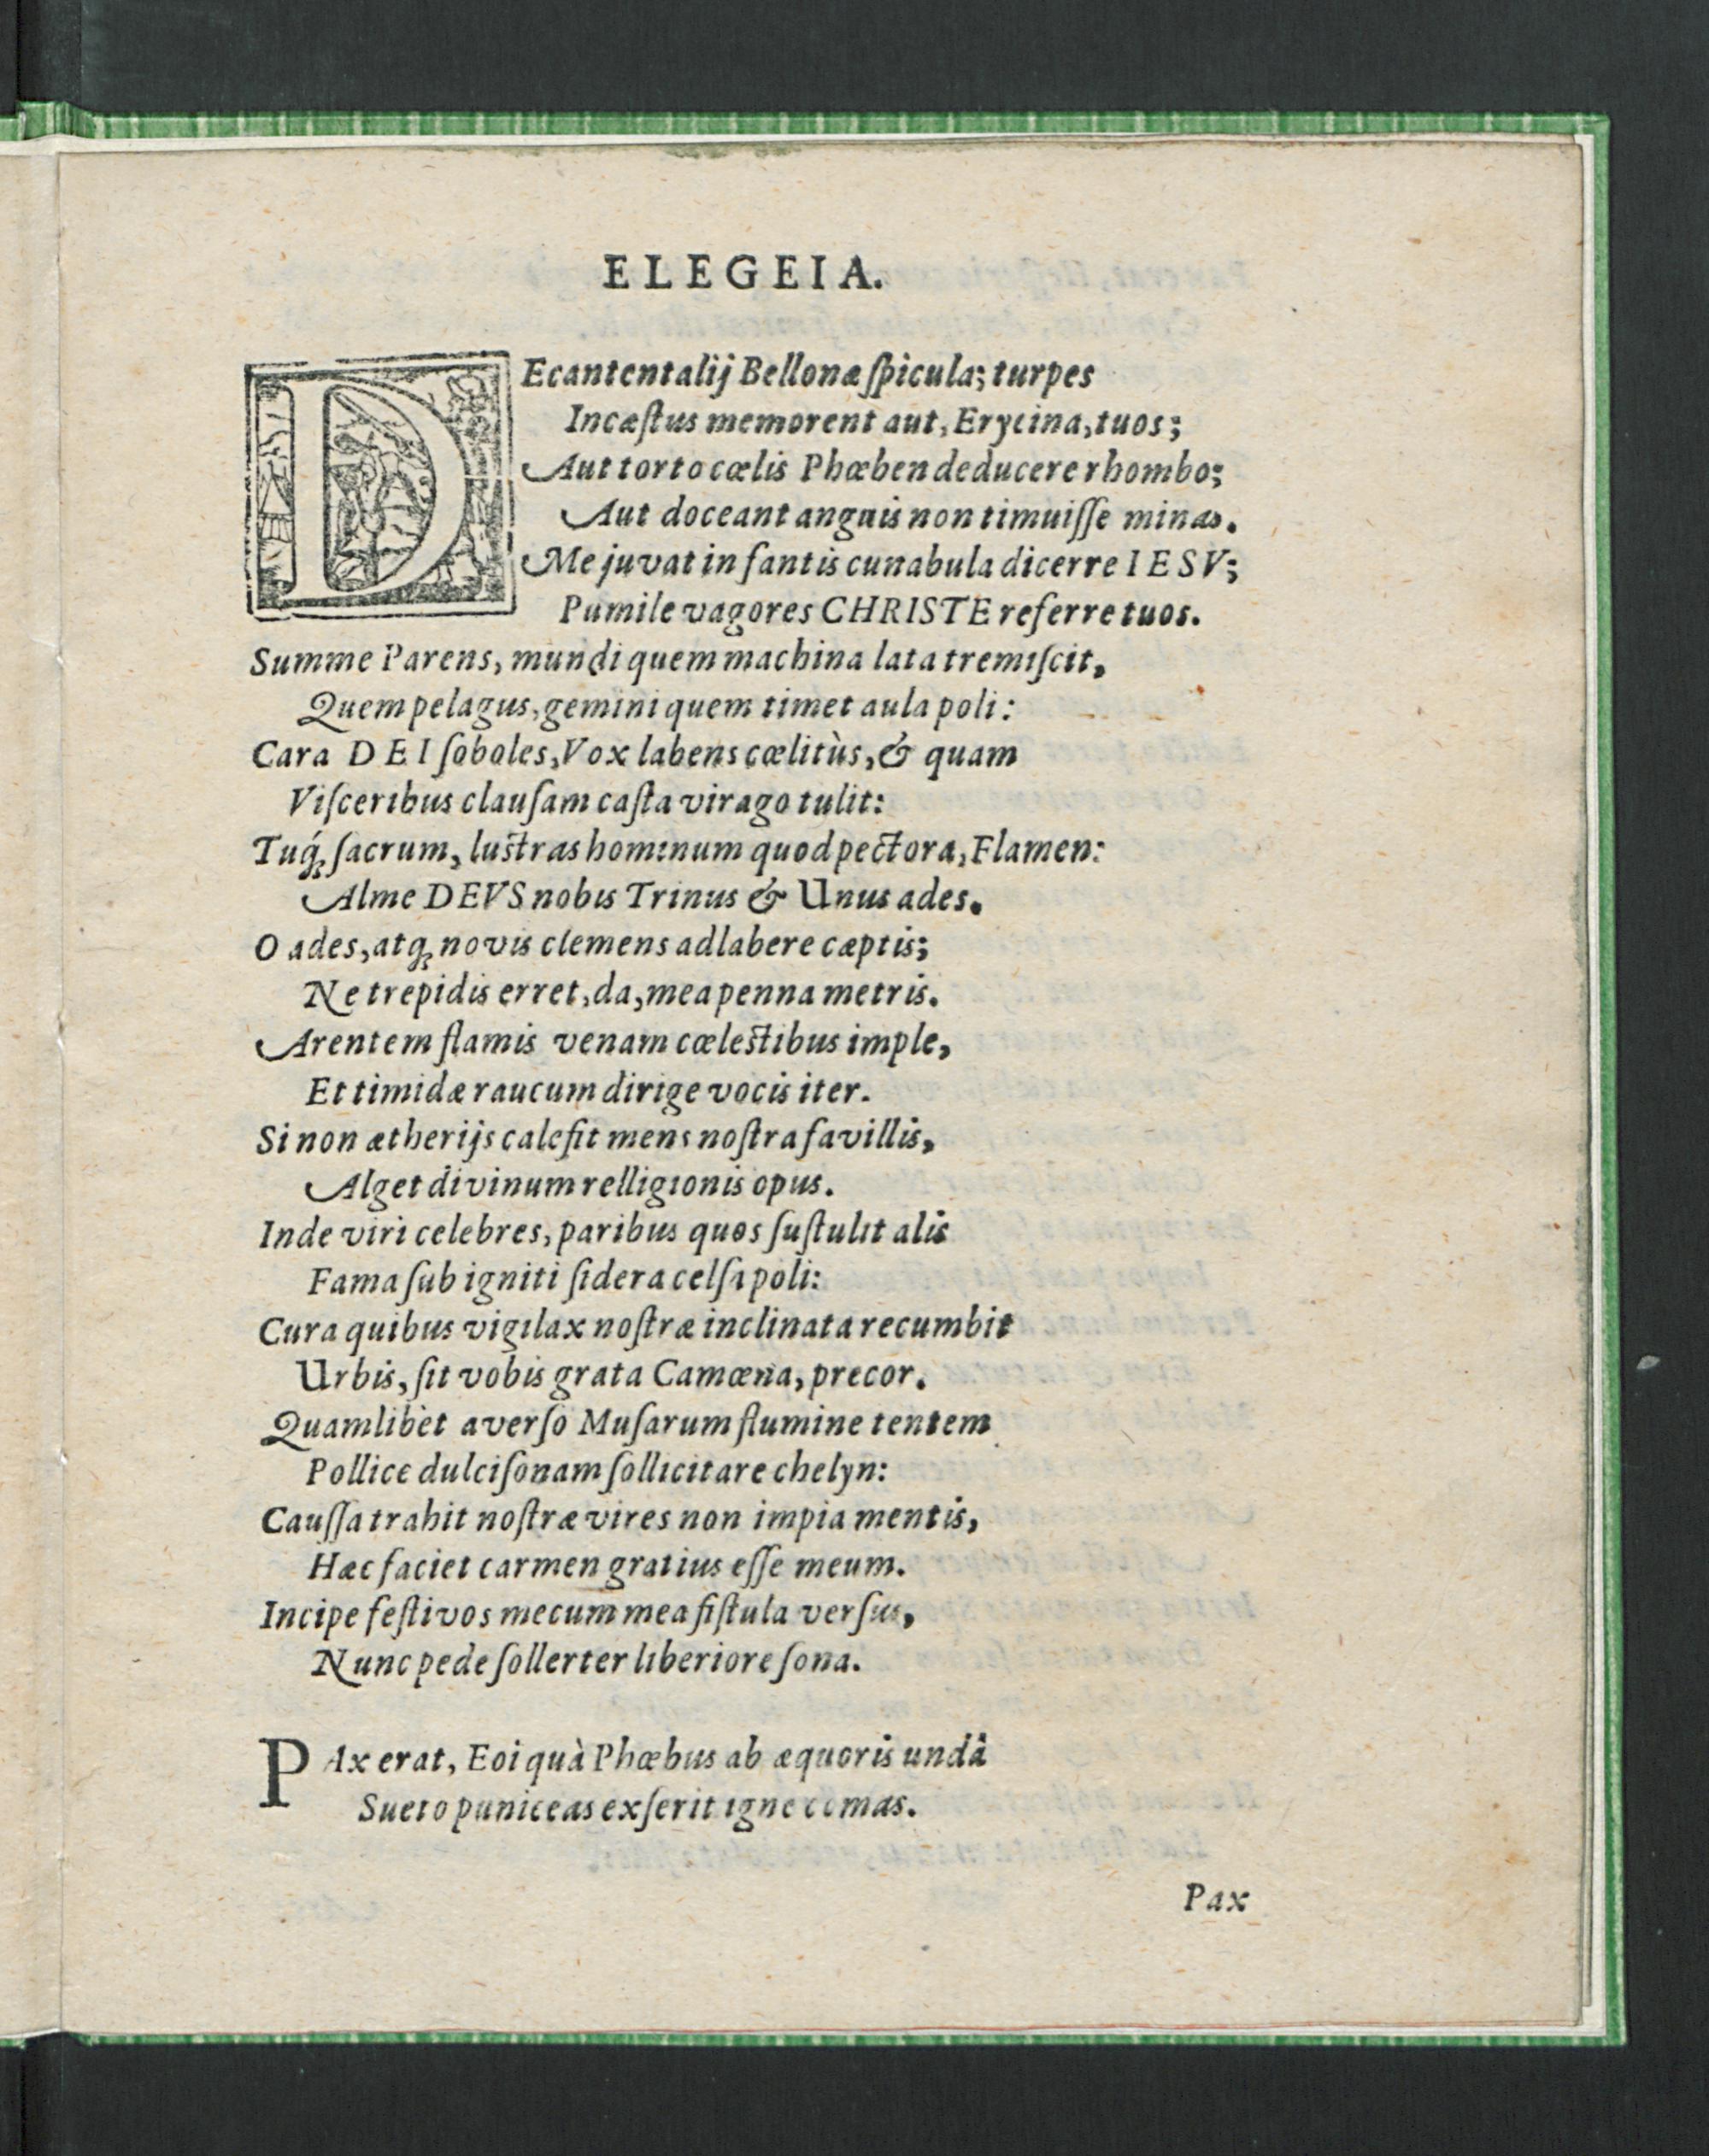 ELEGEIA.
DEcantent alij Bellonæ ſpicula; turpes
Incæſtus memorent aut, Erycina, tuos;
Aut torto cœlis Phœben deducere rhombo;
Aut doceant anguis non timuiſſe minas.
Me juvat infantis cunabula dicerre IESV;
Pumile vagores CHRISTE referre tuos.
Summe Parens, mundi quem machina lata tremiſcit,
Quem pelagus, gemini quem timet aula poli:
Cara DEI ſoboles, Vox labens cœlitùs, & quam
Viſceribus clauſam caſta virago tulit:
Tuq́; ſacrum, luſtras hominum quod pectora, Flamen:
Alme DEVS nobis Trinus & Unus ades.
O ades, atq; novis clemens adlabere cæptis;
Ne trepidis erret, da, mea penna metris.
Arentem flamis venam cœleſtibus imple,
Et timidæ raucum dirige vocis iter.
Si non ætherijs calefit mens noſtra favillis,
Alget divinum relligionis opus.
Inde viri celebres, paribus quos ſuſtulit alis
Fama ſub igniti ſidera celſa poli:
Cura quibus vigilax noſtræ inclinata recumbit
Urbis, ſit vobis grata Camœna, precor.
Quamlibèt averſo Muſarum flumine tentem
Pollice dulciſonam ſollicitare chelyn:
Cauſſa trahit noſtræ vires non impia mentis,
Hæc faciet carmen gratius eſſe meum.
Incipe feſtivos mecum mea fiſtula verſus,
Nunc pede ſollerter liberiore ſona.
PAx erat, Eoi quà Phœbus ab æquoris undâ
Sueto puniceas exſerit igne comas.
Pax